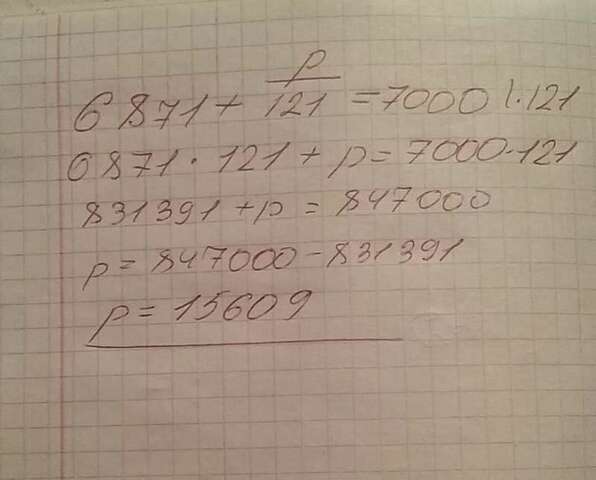 6871 + p/121 = 7000 |·121
6871 · 121 + p = 7000·121
831391 + p = 847000
p = 847000 - 831391
p = 15609